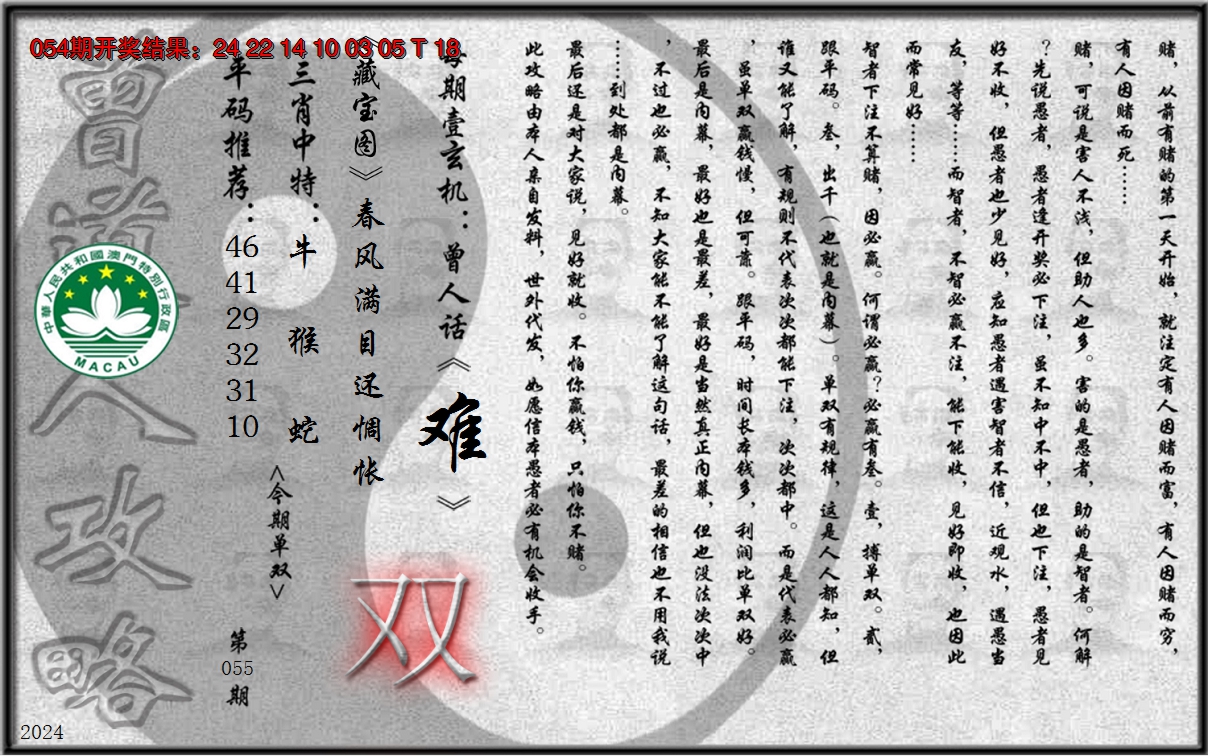 054期开奖结果：24 22 14 10 03 05 T 18
赌，从前有赌的第一天开始，就注定有人因赌而富，有人因赌而穷，
有人因赌而死……
赌，可说是害人不浅，但助人也多。害的是愚者，助的是智者。何解
？先说愚者，愚者逢开奖必下注，虽不知中不中，但也下注，愚者见
好不收，但愚者也少见好，应知愚者遇害智者不信，近观水，遇愚当
友，等等……而智者，不智必赢不注，能下能收，见好即收，也因此
而常见好……
智者下注不算赌，因必赢。何谓必赢？必赢有叁。壹，搏单双。贰，
跟平码。叁，出千（也就是内幕）。单双有规律，这是人人都知，但
谁又能了解，有规则不代表次次都能下注，次次都中。而是代表必赢
，虽单双赢钱慢，但可靠。跟平码，时间长本钱多，利润比单双好。
最后是内幕，最好也是最差，最好是当然真正内幕，但也没法次次中
，不过也必赢，不知大家能不能了解这句话，最差的相信也不用我说
……到处都是内幕。
最后还是对大家说，见好就收。不怕你赢钱，只怕你不赌。
此攻略由本人亲自发料，世外代发，如愿信本愚者必有机会收手。
每期壹玄机：曾人话《难》
《藏宝图》春风满目还惆怅
三肖中特：牛 猴 蛇
平码推荐：46 41 29 32 31 10
<今期单双>
双
第055期
曾道人攻略
中華人民共和國澳門特別行政區
MACAU
2024